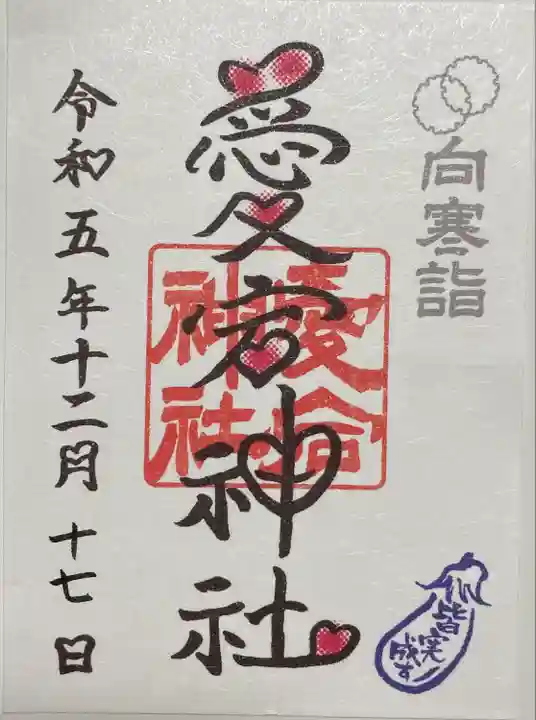 向寒詣
愛宕神社
愛宕神社
令和五年十二月十七日
皆実成す